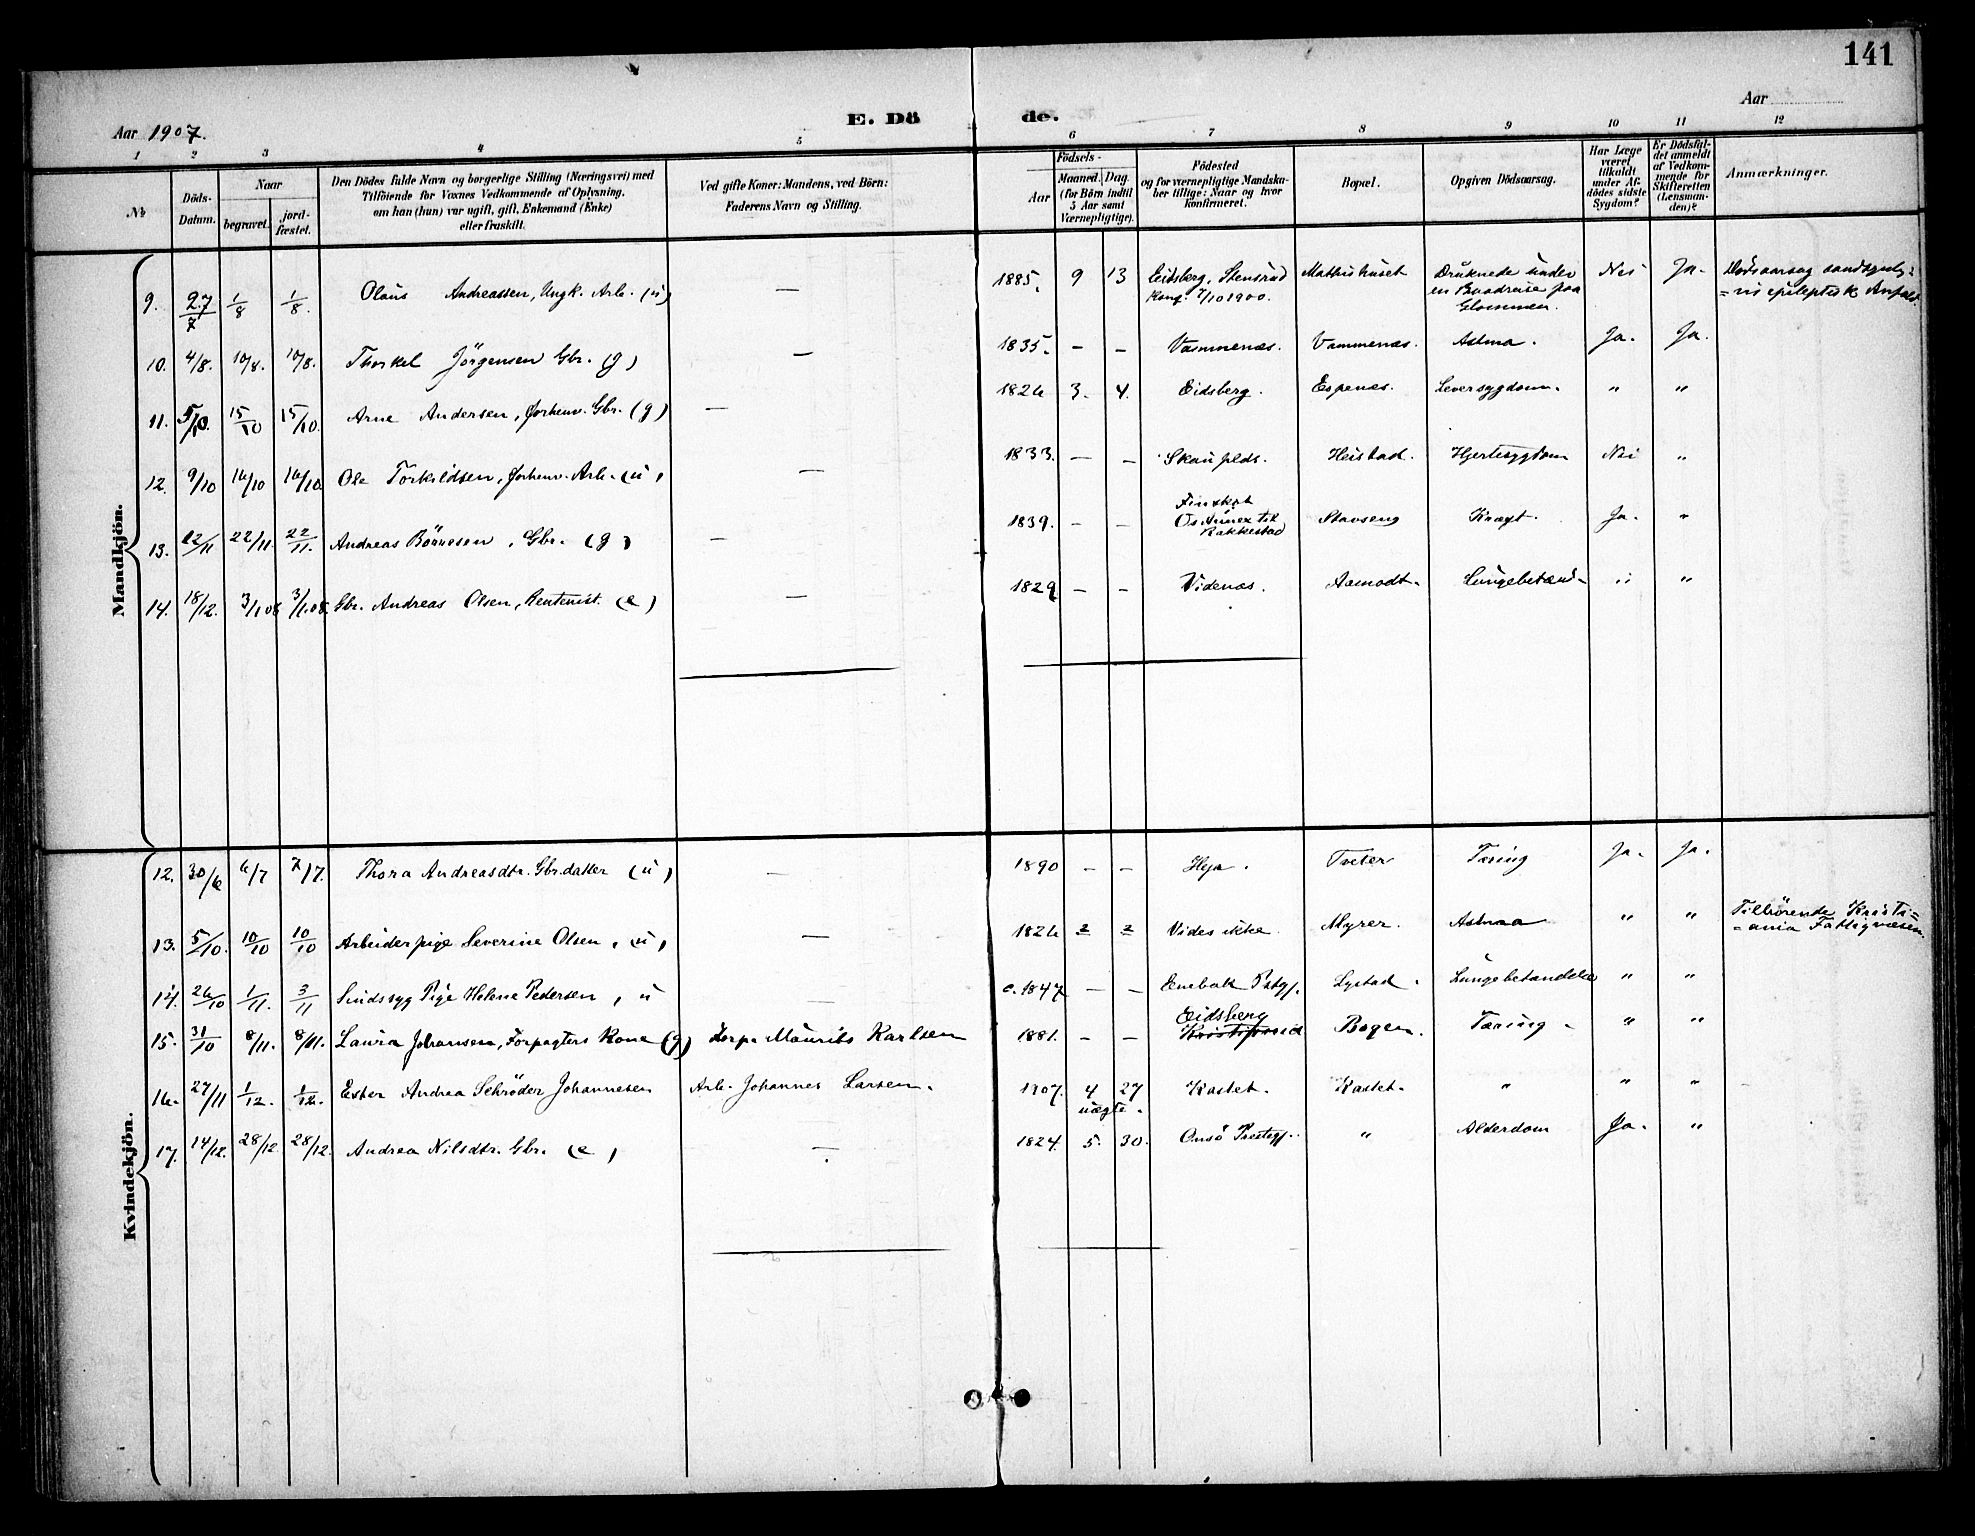 141
Aar 1907.
E. Dö de.
Aar
1 2 3 4 5 6 7 8 9 10 11 12
№
Döds-Datum.
Naar
begravet.
jord-fæstet.
Den Dödes fulde Navn og borgerlige Stilling (Næringsvei) med
Tilföiende for Voxnes Vedkommende af Oplysning,
om han (hun) var ugift, gift, Enkemand (Enke)
eller fraskilt.
Ved gifte Koner: Mandens, ved Börn:
Faderens Navn og Stilling.
Födsels-
Aar
Maaned. Dag.
(for Börn indtil
5 Aar samt
Værnepligtige).
Födested
og for værnepligtige Mandska-
ber tillige: Naar og hvor
konfirmeret.
Bopæl.
Opgiven Dödsaarsag.
Har Læge
været
tilkaldt
under Af-
dödes sidste
Sygdom?
Er Dödsfal-
det anmeldt
af Vedkom-
mende for
Skifteretten
(Lensman-
den)?
Anmærkninger.
Mandkjön.
9. 27/7 1/8 1/8. Olaus Andreassen, Ungk. Arb. (u) — 1885. 9 13 Eidsberg, Stensrud Mathishuset Druknede under Nei Ja. Dödsaarsag sandsynlig=
Konf. 7/10 1900. en Baadreise paa =vis epileptisk Anfald.
Glommen.
10. 4/8. 10/8. 10/8. Thorkel Jörgensen Gbr. (g) — 1835. — — Vammenæs. Vammenæs. Astma. Ja. Ja.
11. 5/10. 15/10 15/10. Arne Andersen, forhenv. Gbr. (g) — 1826 3. 4. Eidsberg. Espenæs. Leversygdom. " "
12. 9/10 16/10 16/10 Ole Torkildsen, forhenv. Arb. (u) — 1833. — — Skauplds. Heistad. Hjertesygdom Nei "
13. 12/11 22/11. 22/11. Andreas Börresen, Gbr. (g) — 1839. — — Os Annex til Rakkestad Stavseng Kræft. Ja. "
14. 18/12. 3/1 08 3/1 08. Gbr. Andreas Olsen, Rentenist. (e) — 1829 — — Videnæs. Aamodt. Lungebetænd- " "
Kvindekjön.
12. 30/6 6/7 7/7. Thora Andreasdtr. Gbr.datter (u) — 1890 — — Heja. Tveter Tæring Ja. Ja.
13. 5/10. 10/10 10/10 Arbeiderpige Severine Olsen, (u) — 1826 2 2 Vides ikke Myrer. Astma " " Tilhörende Kristi=
=ania Fattigvæsen.
14. 26/10 1/11. 3/11 Sindssyg Pige Helene Pedersen, u — c. 1847 — — Enebak Pstgj. Lystad. Lungebetændelse " "
15. 31/10 8/11. 8/11. Laura Johansen, Forpagters Kone (g) Forp. Maurits Karlsen 1881. — — Eidsberg Bogen. Tæring " "
16. 27/11 1/12. 1/12. Ester Andrea Schröder Johannesen Arb. Johannes Larsen. 1907. 4 27 Kastet. Kastet. " " "
uægte.
17. 14/12. 28/12 28/12. Andrea Nilsdtr. Gbr. (e) — 1824. 5. 30. Onsö Præstegj. " Alderdom Ja. "